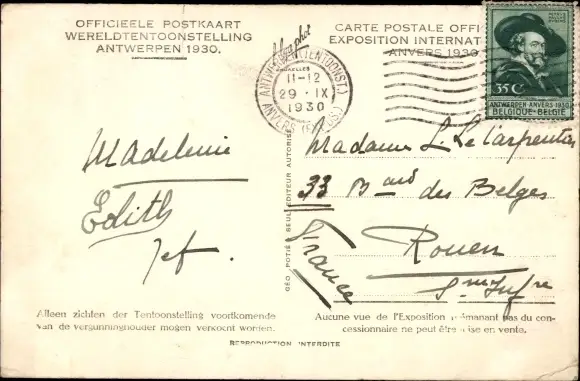 OFFICIEELE POSTKAART
WERELDTENTOONSTELLING
ANTWERPEN 1930.
CARTE POSTALE OFFI
EXPOSITION INTERNAT
ANVERS 1930
ANTWERPEN (TENTOONST.)
11-12
29 · IX
1930
35 C
ANTWERPEN-ANVERS 1930
BELGIQUE-BELGIË
Madeleine
Edith
Jef.
Madame L. Le Carpentier
33 Bard des Belges
Rouen
Sne Infre
France
GÉO POTIÉ SEUL EDITEUR AUTORISÉ
Alleen zichten der Tentoonstelling voortkomende
van de vergunninghouder mogen verkocht worden.
Aucune vue de l'Exposition n'émanant pas du con-
cessionnaire ne peut être mise en vente.
REPRODUCTION INTERDITE